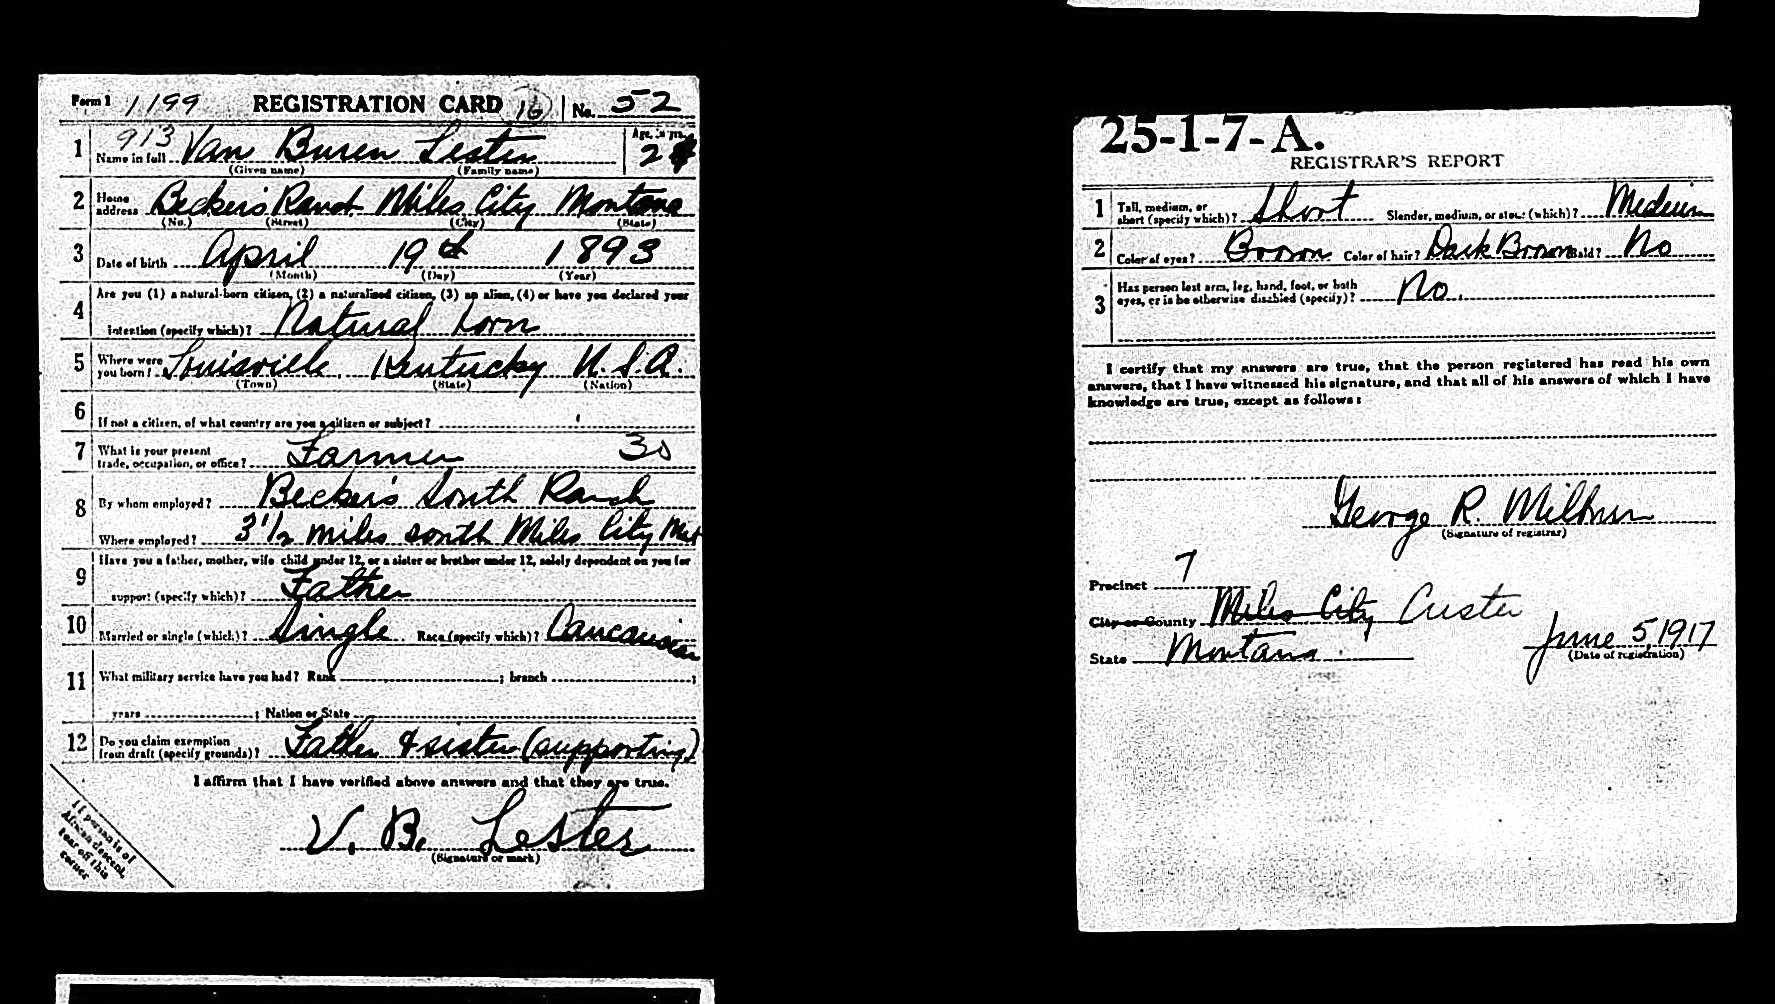 Form 1 1199 REGISTRATION CARD 16 No. 52
913
1 Name in full Van Buren Lester Age, in yrs. 24
(Given name) (Family name)
2 Home address Becker's Ranch Miles City Montana
(No.) (Street) (City) (State)
3 Date of birth April 19th 1893
(Month) (Day) (Year)
4 Are you (1) a natural-born citizen, (2) a naturalized citizen, (3) an alien, (4) or have you declared your
intention (specify which)? Natural born
5 Where were you born? Louisville Kentucky U.S.A.
(Town) (State) (Nation)
6 If not a citizen, of what country are you a citizen or subject?
7 What is your present trade, occupation, or office? Farmer 30
8 By whom employed? Becker's South Ranch
Where employed? 3 1/2 miles south Miles City Mont
9 Have you a father, mother, wife child under 12, or a sister or brother under 12, solely dependent on you for
support (specify which)? Father
10 Married or single (which)? Single Race (specify which)? Caucausian
11 What military service have you had? Rank ; branch ;
years ; Nation or State
12 Do you claim exemption from draft (specify grounds)? Father & sister (supporting)
I affirm that I have verified above answers and that they are true.
V. B. Lester
(Signature or mark)
If person is of
African descent,
tear off this
corner
25-1-7-A.
REGISTRAR'S REPORT
1 Tall, medium, or short (specify which)? Short Slender, medium, or stout (which)? Medium
2 Color of eyes? Brown Color of hair? Dark Brown Bald? No
3 Has person lost arm, leg, hand, foot, or both
eyes, or is he otherwise disabled (specify)? No.
I certify that my answers are true, that the person registered has read his own
answers, that I have witnessed his signature, and that all of his answers of which I have
knowledge are true, except as follows:
George R. Milburn
(Signature of registrar)
Precinct 7
City or County Miles City Custer
State Montana June 5, 1917
(Date of registration)